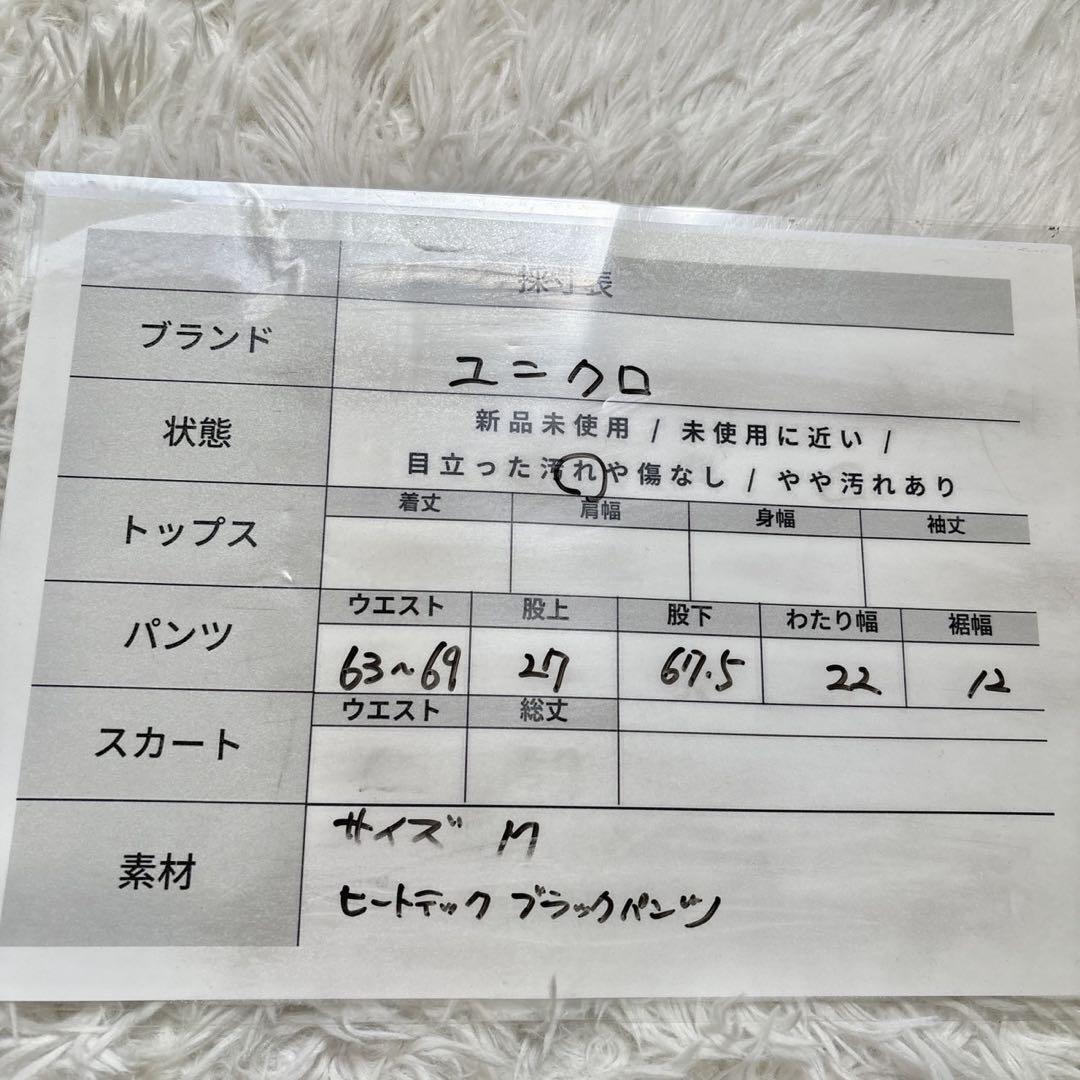 採寸表
ブランド
ユニクロ
状態
新品未使用 / 未使用に近い /
目立った汚れや傷なし / やや汚れあり
トップス
着丈 肩幅 身幅 袖丈
パンツ
ウエスト 股上 股下 わたり幅 裾幅
63〜69 27 67.5 22 12
スカート
ウエスト 総丈
素材
サイズ M
ヒートテック ブラックパンツ